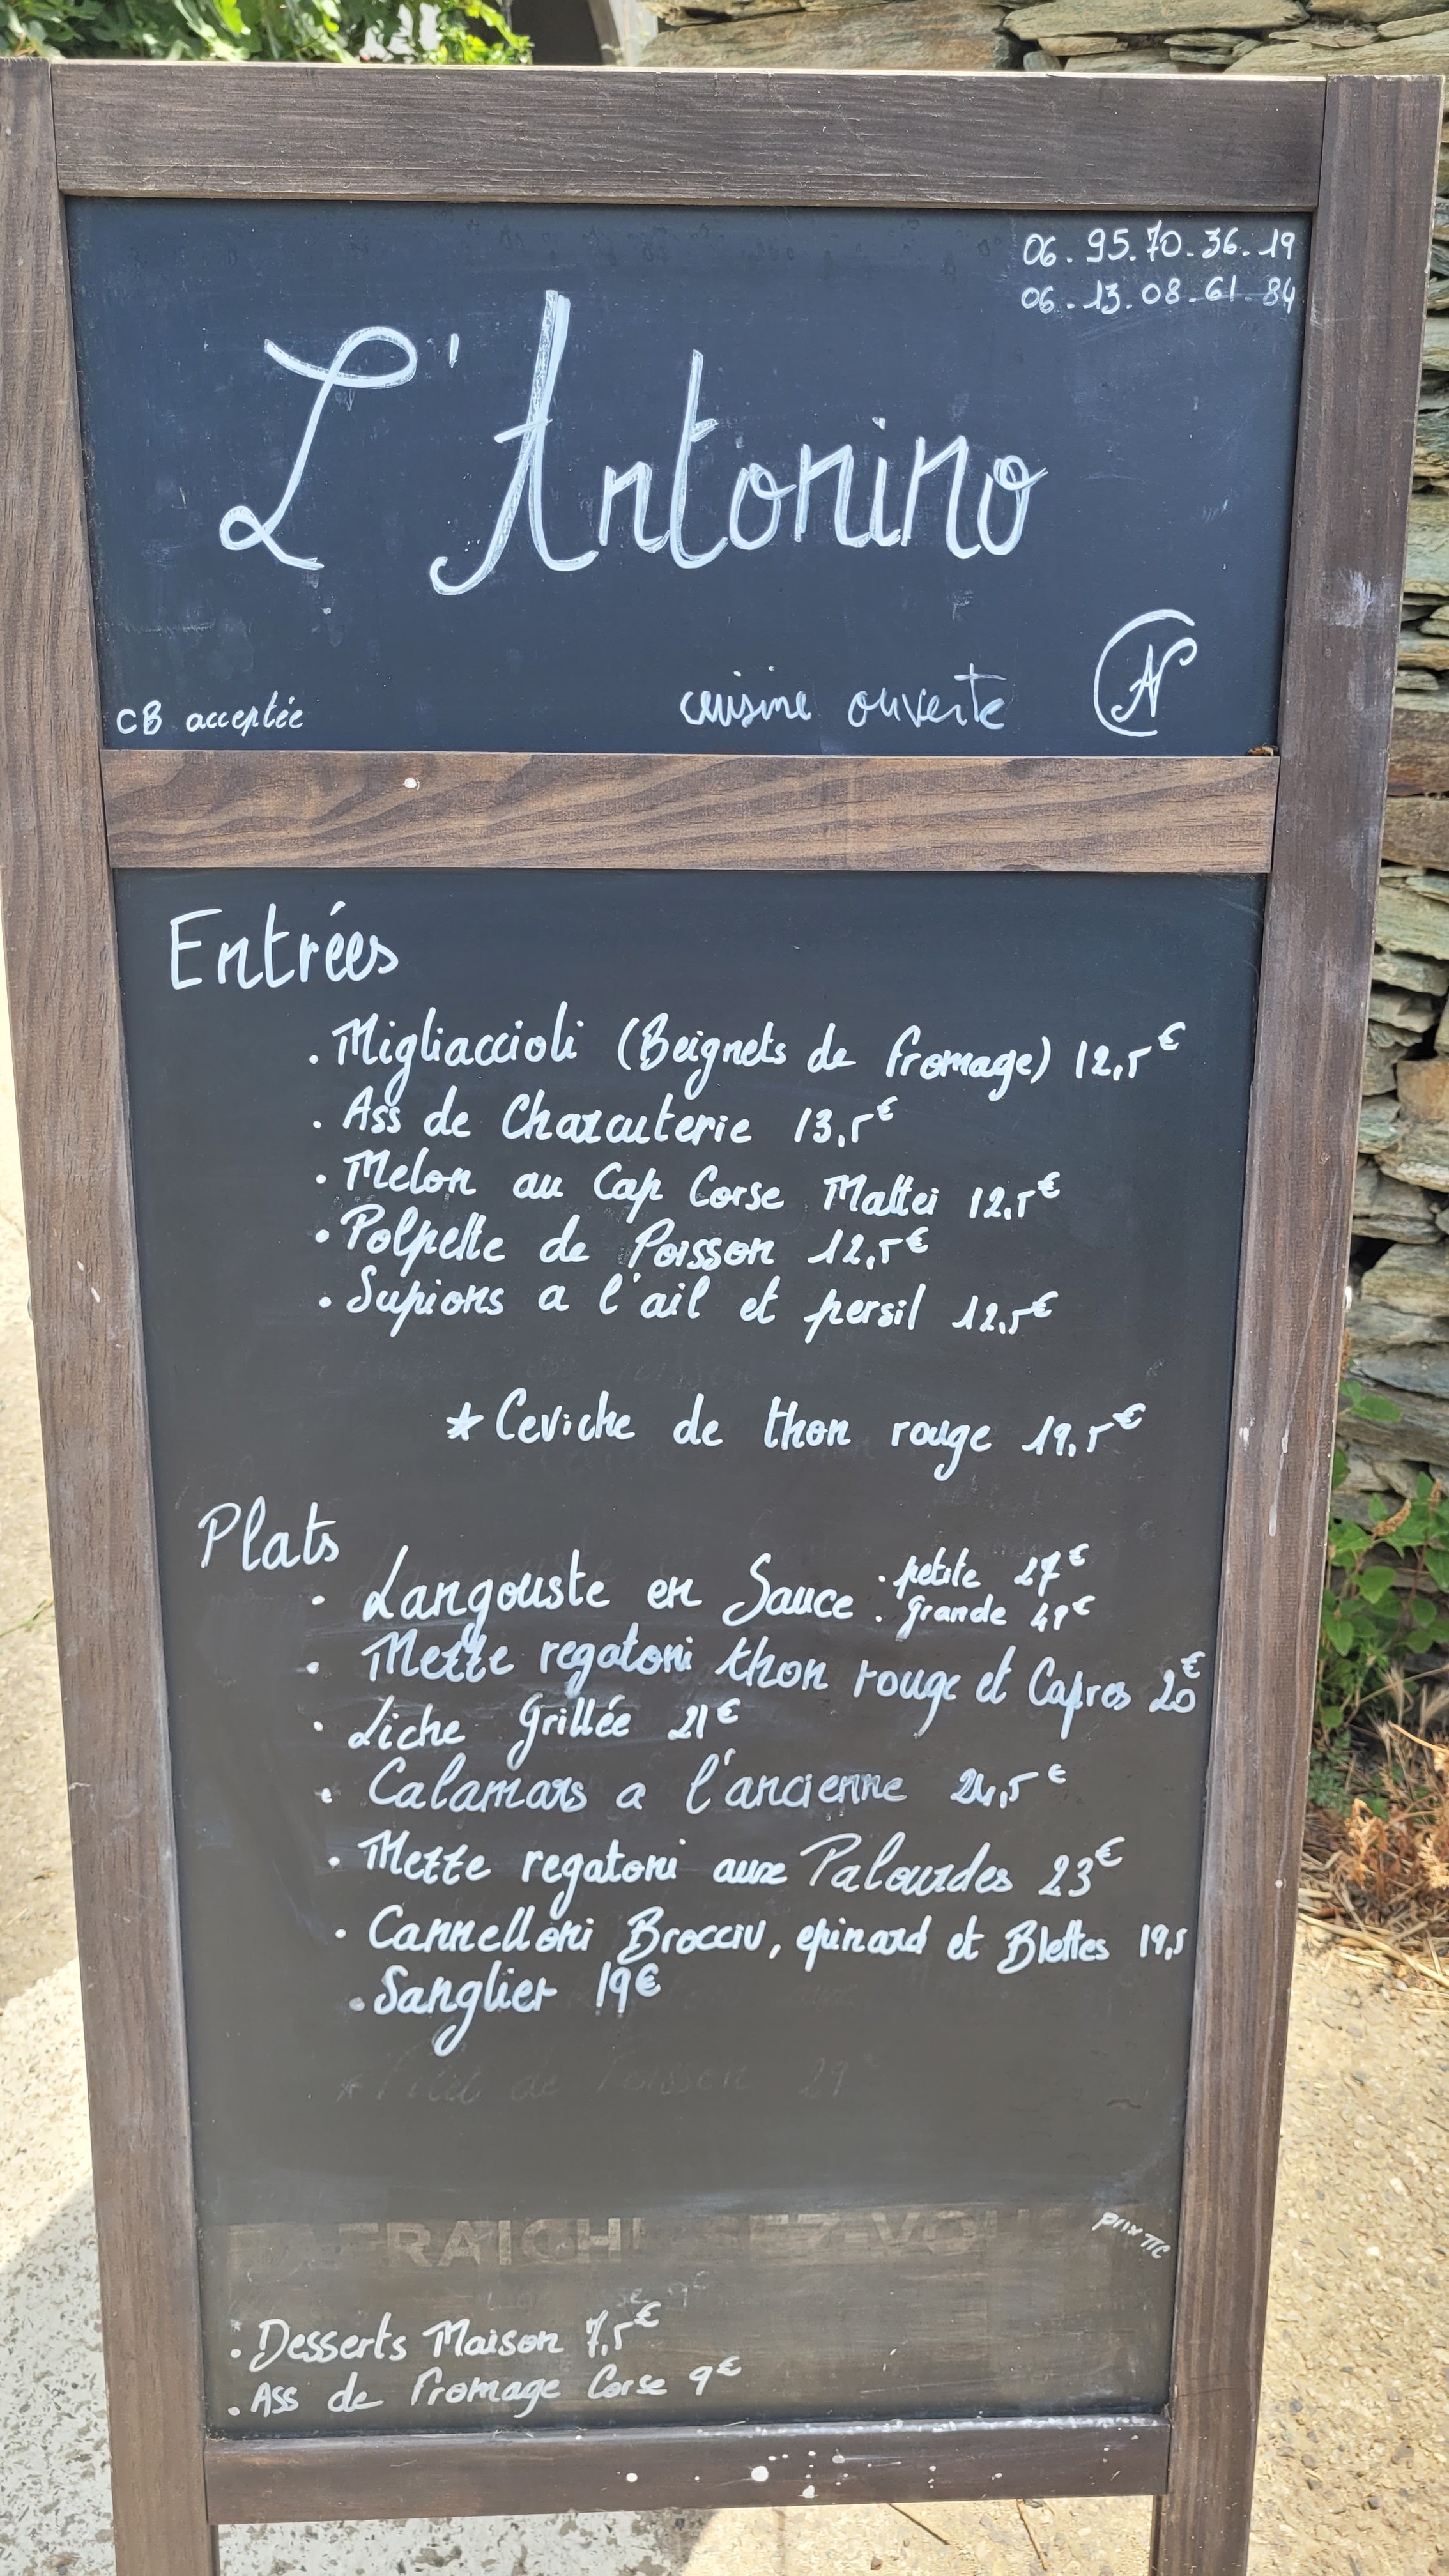 06.95.70.36.19
06.13.08.61.84
L'Antonino
CB acceptée
cuisine ouverte
Entrées
. Migliaccioli (Beignets de fromage) 12,5€
. Ass de Charcuterie 13,5€
. Melon au Cap Corse Mattei 12,5€
. Polpette de Poisson 12,5€
. Supions a l'ail et persil 12,5€
* Ceviche de thon rouge 19,5€
Plats
. Langouste en Sauce . petite 27€
. grande 49€
. Mezze regatoni thon rouge et Capres 20€
. Liche Grillée 21€
. Calamars a l'ancienne 24,5€
. Mezze regatoni aux Palourdes 23€
. Cannelloni Brocciu, epinard et Blettes 19,5
. Sanglier 19€
Prix TTC
. Desserts Maison 7,5€
. Ass de fromage Corse 9€